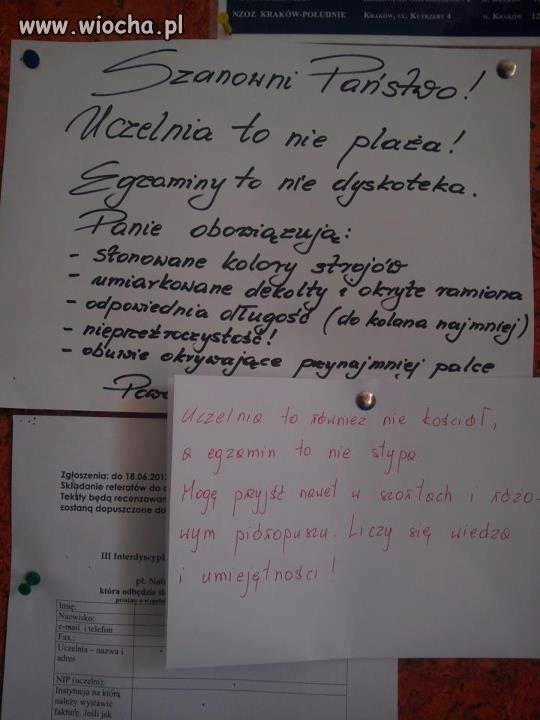 www.wiocha.pl
NZOZ KRAKÓW-POŁUDNIE
KRAKÓW, UL. KUTRZEBY 4
UL. KRAKÓW 12
Szanowni Państwo!
Uczelnia to nie plaża!
Egzaminy to nie dyskoteka.
Panie obowiązują:
- stonowane kolory strojów
- umiarkowane dekolty i okryte ramiona
- odpowiednia długość (do kolana najmniej)
- nieprzeźroczystość!
- obuwie okrywające przynajmniej palce
Uczelnia to również nie kościół,
a egzamin to nie stypa.
Mogę przyjść nawet w szortach i różo-
wym pióropuszu. Liczy się wiedza
i umiejętności!
Zgłoszenia: do 18.06.201
Składanie referatów do
Teksty będą recenzowan
zostaną dopuszczone do
III Interdyscypl
pt. Natu
która odbędzie si
prosimy o wypeł
Imię:
Nazwisko:
e-mail i telefon
Fax.:
Uczelnia – nazwa i
adres
NIP (uczelni):
Instytucja na którą
należy wystawić
fakturę: Jeśli jak